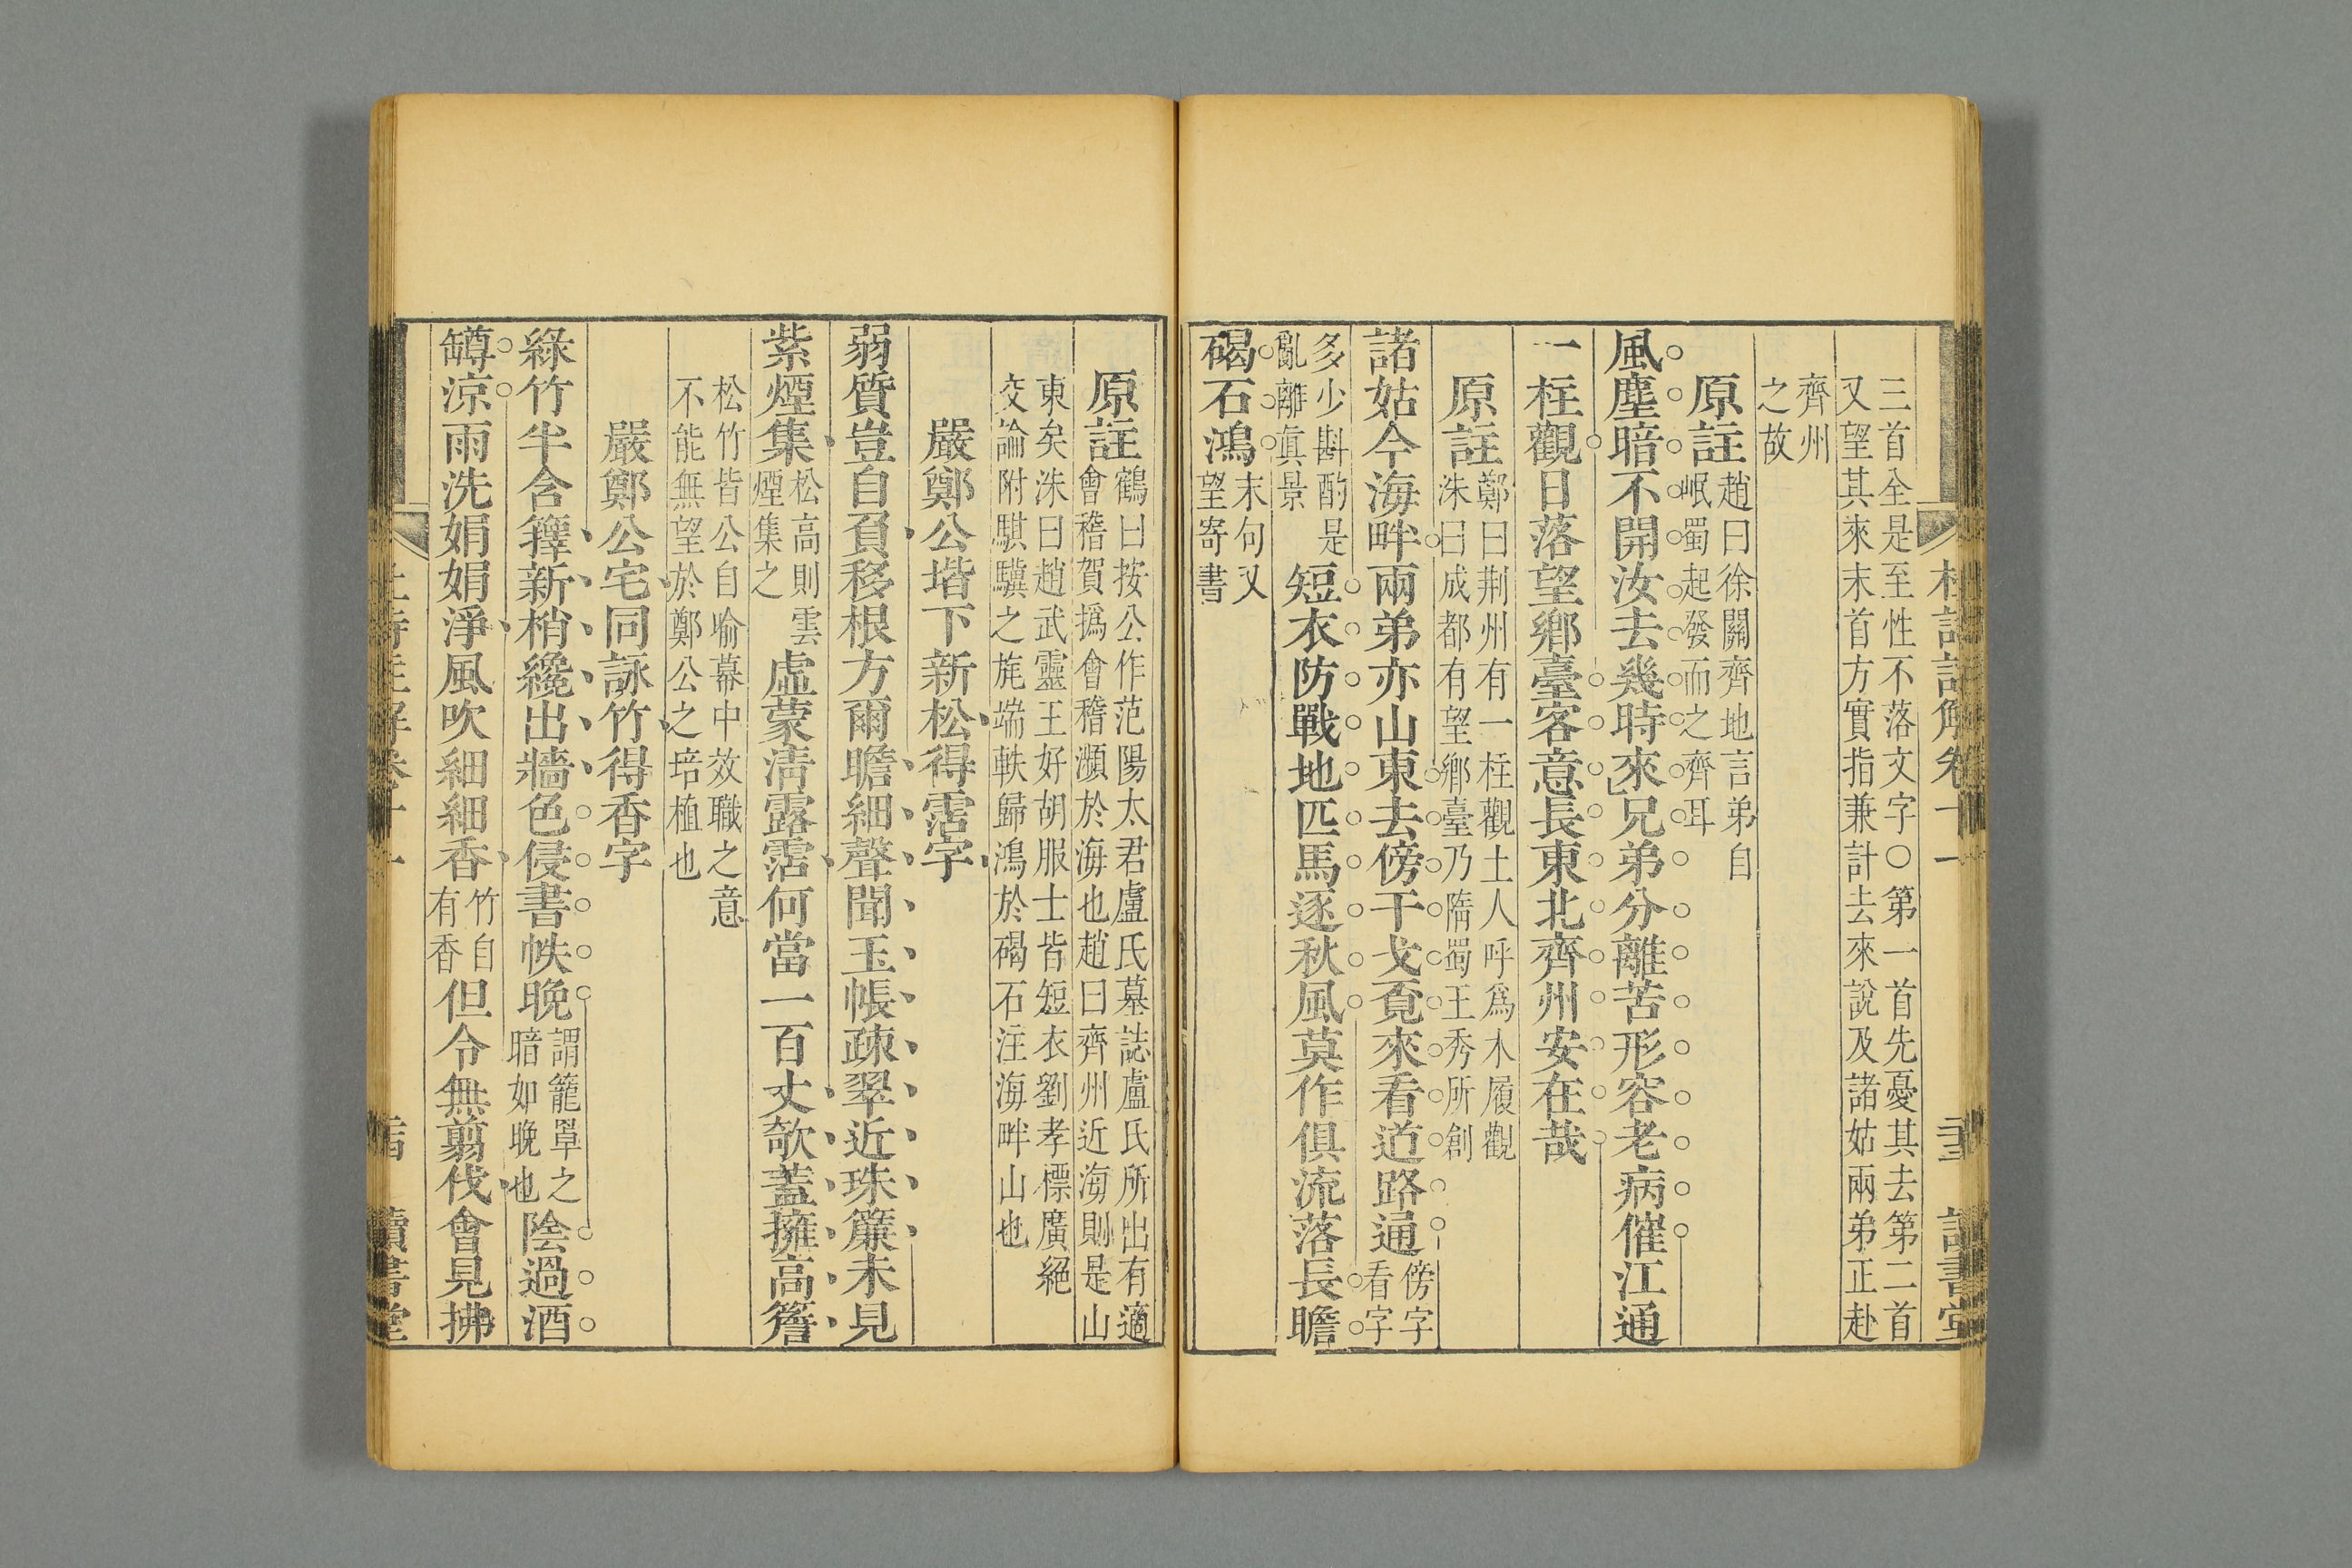 三首全是至性不落文字○第一首先憂其去第二首
又望其來末首方實指兼計去來說及諸姑兩弟正赴
齊州
之故
原註趙曰徐關齊地言弟自
岷蜀起發而之齊耳
風塵暗不開汝去幾時來兄弟分離苦形容老病催江通
一柱觀日落望鄉臺客意長東北齊州安在哉
原註鄭曰荆州有一柱觀土人呼爲木履觀
洙曰成都有望鄉臺乃隋蜀王秀所創
諸姑今海畔兩弟亦山東去傍干戈覔來看道路通傍字
看字
多少斟酌是
亂離眞景
短衣防戰地匹馬逐秋風莫作俱流落長瞻
碣石鴻末句又
望寄書
杜詩註解卷十一
讀書堂
原註鶴曰按公作范陽太君盧氏墓誌盧氏所出有適
會稽賀撝會稽瀕於海也趙曰齊州近海則是山
東矣洙曰趙武靈王好胡服士皆短衣劉孝標廣絕
交論附騏驥之旄端軼歸鴻於碣石注海畔山也
嚴鄭公堦下新松得霑字
弱質豈自負移根方爾瞻細聲聞玉帳疎翠近珠簾未見
紫煙集松高則雲
煙集之
虛蒙淸露霑何當一百丈欹蓋擁高簷
松竹皆公自喻幕中效職之意
不能無望於鄭公之培植也
嚴鄭公宅同詠竹得香字
綠竹半含籜新梢纔出牆色侵書帙晚謂籠罩之
暗如晚也
陰過酒
罇涼雨洗娟娟淨風吹細細香竹自
有香
但令無翦伐會見拂
讀書堂